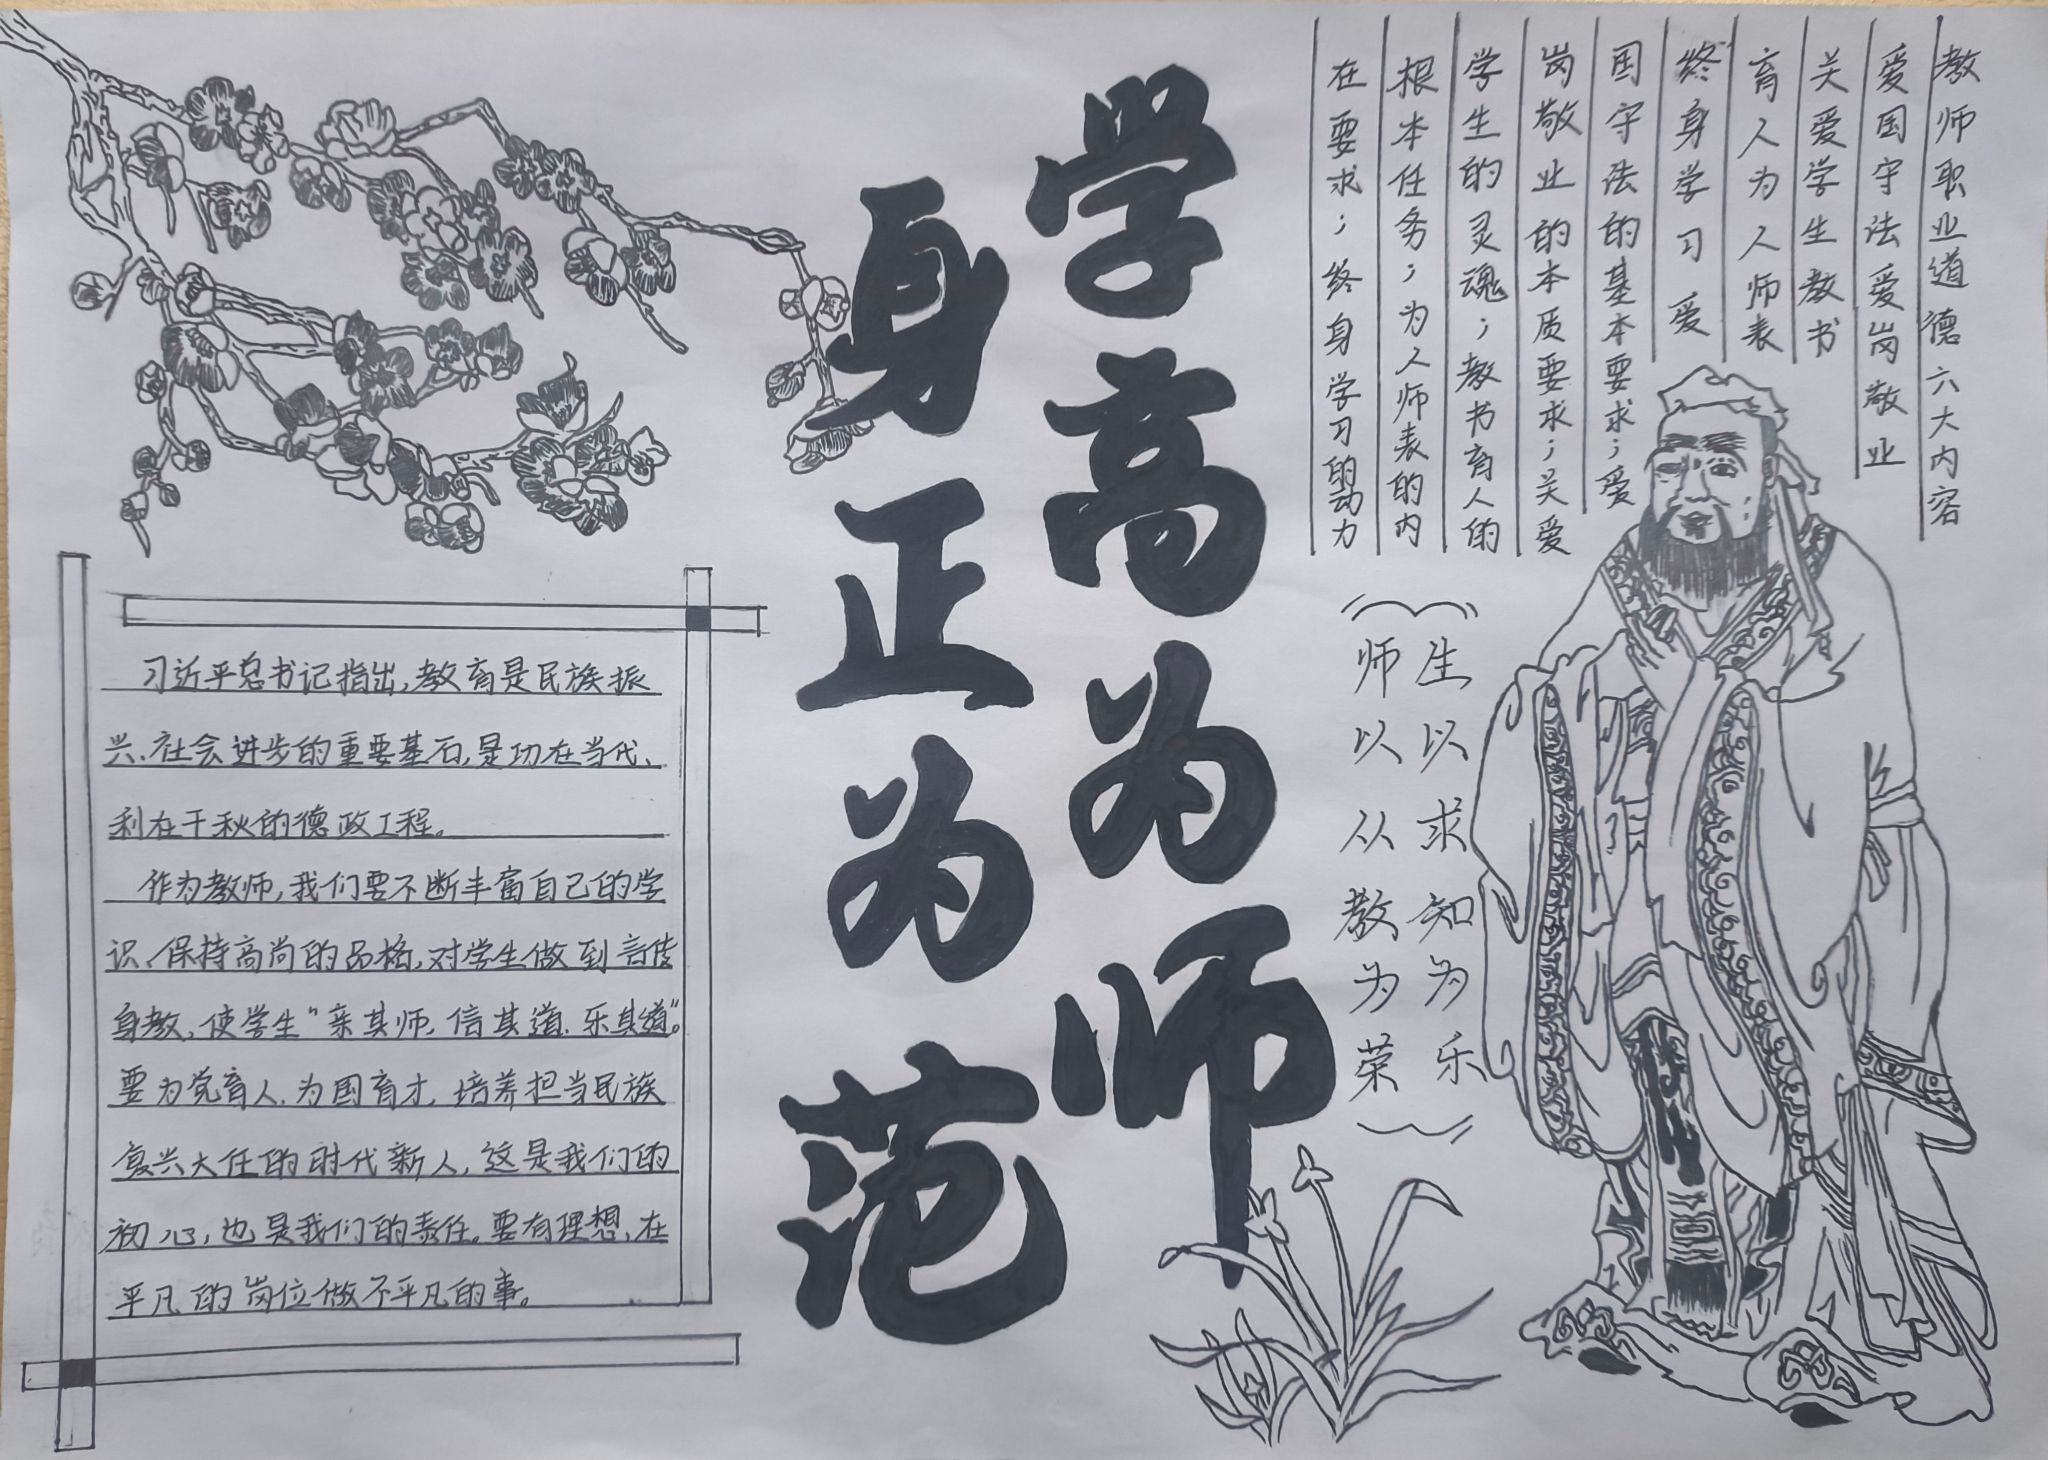 教师职业道德六大内容
爱国守法爱岗敬业
关爱学生教书
育人为人师表
终身学习 爱
国守法的基本要求；爱
岗敬业的本质要求；关爱
学生的灵魂；教书育人的
根本任务；为人师表的内
在要求；终身学习的动力
学高为师
身正为范
生以求知为乐
师以从教为荣
习近平总书记指出，教育是民族振
兴、社会进步的重要基石，是功在当代、
利在千秋的德政工程。
作为教师，我们要不断丰富自己的学
识、保持高尚的品格，对学生做到言传
身教，使学生“亲其师，信其道，乐其道”。
要为党育人，为国育才，培养担当民族
复兴大任的时代新人，这是我们的
初心，也是我们的责任。要有理想，在
平凡的岗位做不平凡的事。